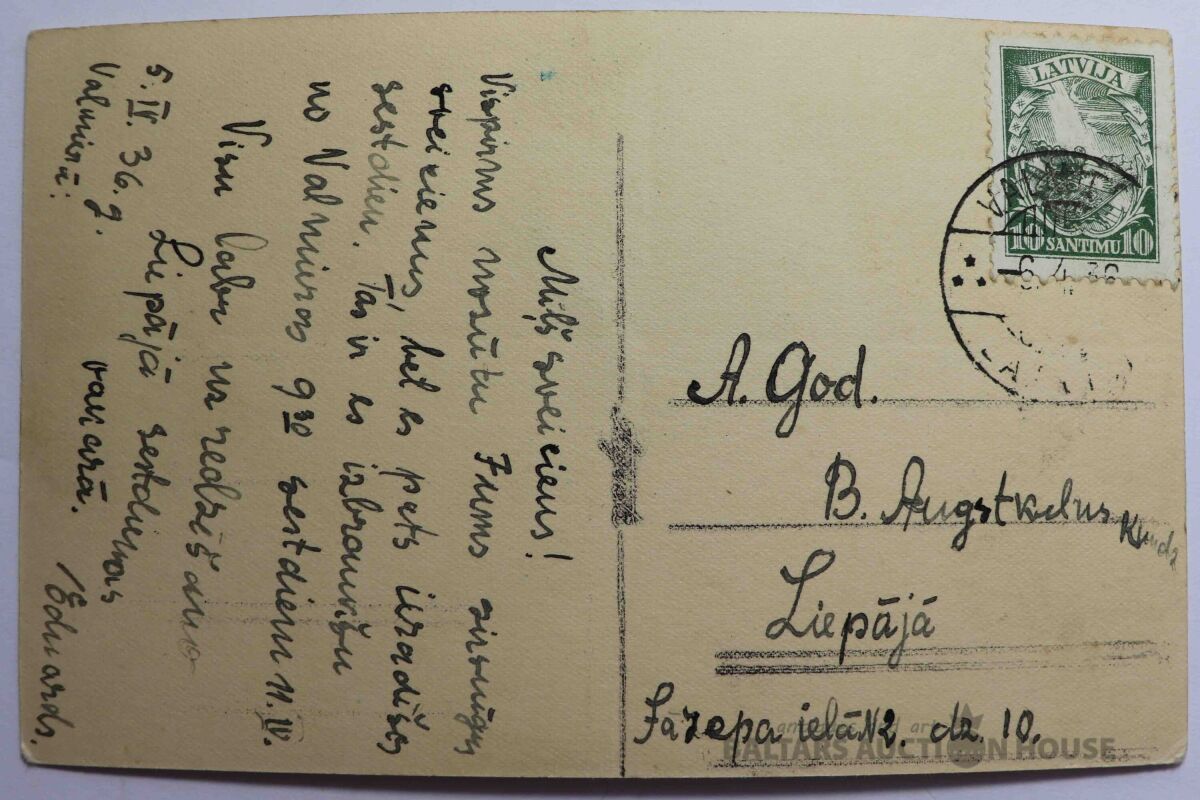 Mīļš sveiciens!
Vispirms nosūtu Jums sirsnīgus
sveicienus, bet es pats ieradīšos
sestdien. Tas ir es izbraukšu
no Valmieras 9 30 sestdien 11.IV.
Visu labu uz redzēšanos
Liepājā sestdienas
vakarā.
5.IV.36.g.
Valmierā.
/Eduards.
LATVIJA
10 SANTIMU 10
A. God.
B. Augstkalns
Liepājā
Jāzepa ielā N2. dz. 10.
BALTARS AUCTION HOUSE